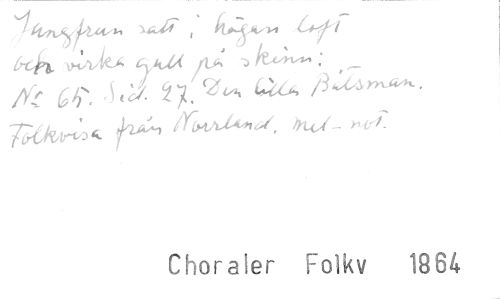 Jungfrun satt i högan loft
och virka gull på skinn:
No 65. Sid. 27. Den lilla Båtsman.
Folkvisa från Norrland. mel-not.
Choraler Folkv 1864